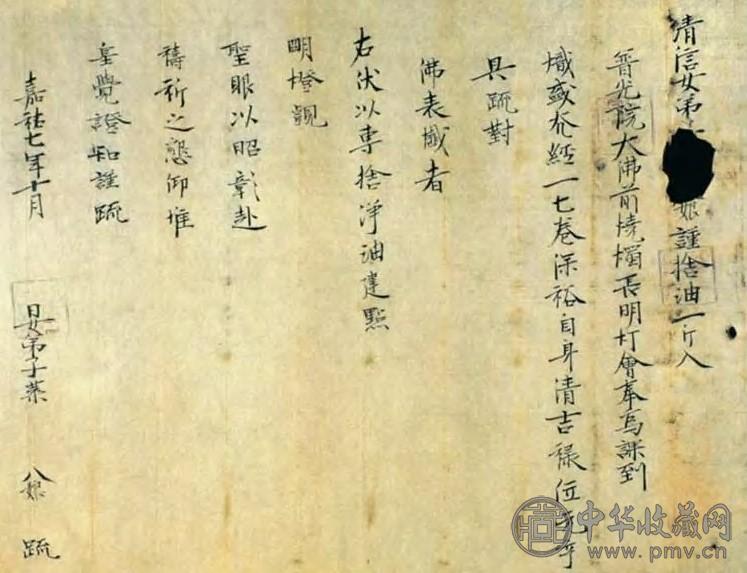 清信女弟 娘謹捨油一斤入
普光院大佛前燒 長明灯會奉為課到
熾盛 經一七卷保裕自身清吉祿位
具䟽對
佛表 者
右伏以専捨淨油建點
明燈覬
聖眼以昭彰赴
禱祈之懇仰惟
皇覺證知謹䟽
嘉祐七年十月 日女弟子葉 八娘 䟽
中华收藏网
www.pmv.cn